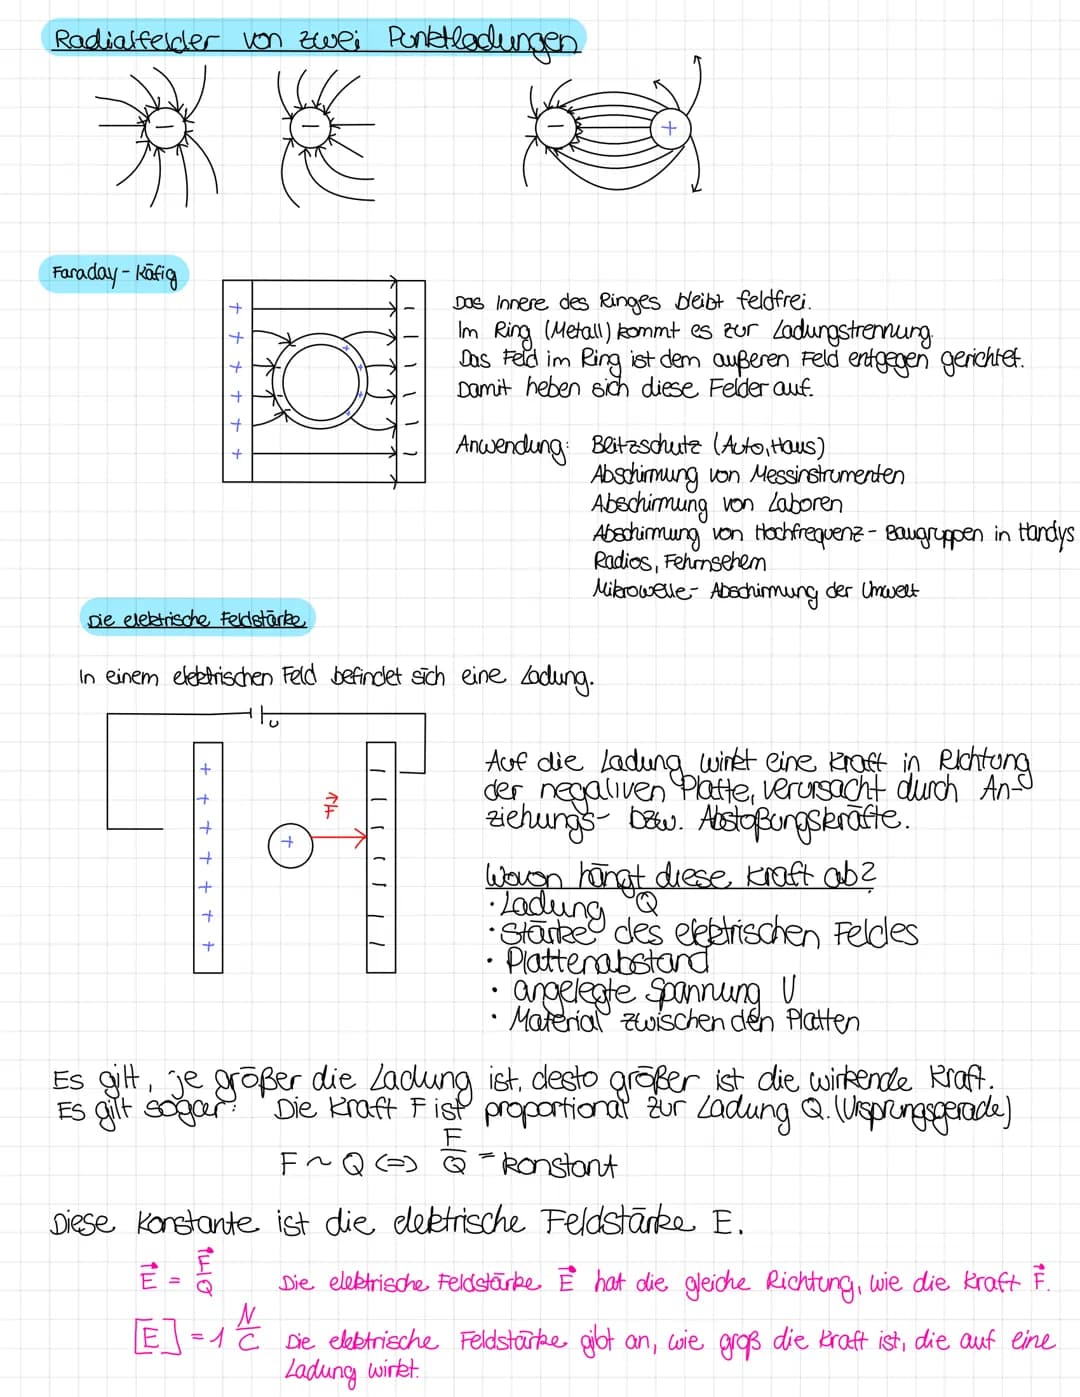 Radialfelder von zwei Punktladungen
Faraday-Käfig
Das Innere des Ringes bleibt feldfrei.
Im Ring (Metall) kommt es zur Ladungstrennung.
Das Feld im Ring ist dem äußeren Feld entgegen gerichtet.
Damit heben sich diese Felder auf.
Anwendung: Blitzschutz (Auto, Haus)
Abschirmung von Messinstrumenten
Abschirmung von Laboren
Abschirmung von Hochfrequenz-Baugruppen in Handys
Radios, Fehrnsehern
Mikrowelle- Abschirmung der Umwelt
Die elektrische Feldstärke
In einem elektrischen Feld befindet sich eine Ladung.
U
F
Auf die Ladung wirkt eine Kraft in Richtung
der negativen Platte, verursacht durch An-
ziehungs- bzw. Abstoßungskräfte.
Wovon hängt diese Kraft ab?
· Ladung Q
· Stärke des elektrischen Feldes
· Plattenabstand
· angelegte Spannung U
· Material zwischen den Platten
Es gilt, je größer die Ladung ist, desto größer ist die wirkende Kraft.
Es gilt sogar: Die Kraft F ist proportional zur Ladung Q. (Ursprungsgerade)
F ~ Q <=> F/Q = konstant
Diese Konstante ist die elektrische Feldstärke E.
E⃗ = F⃗/Q Die elektrische Feldstärke E⃗ hat die gleiche Richtung, wie die Kraft F⃗.
[E] = 1 N/C Die elektrische Feldstärke gibt an, wie groß die Kraft ist, die auf eine
Ladung wirkt.